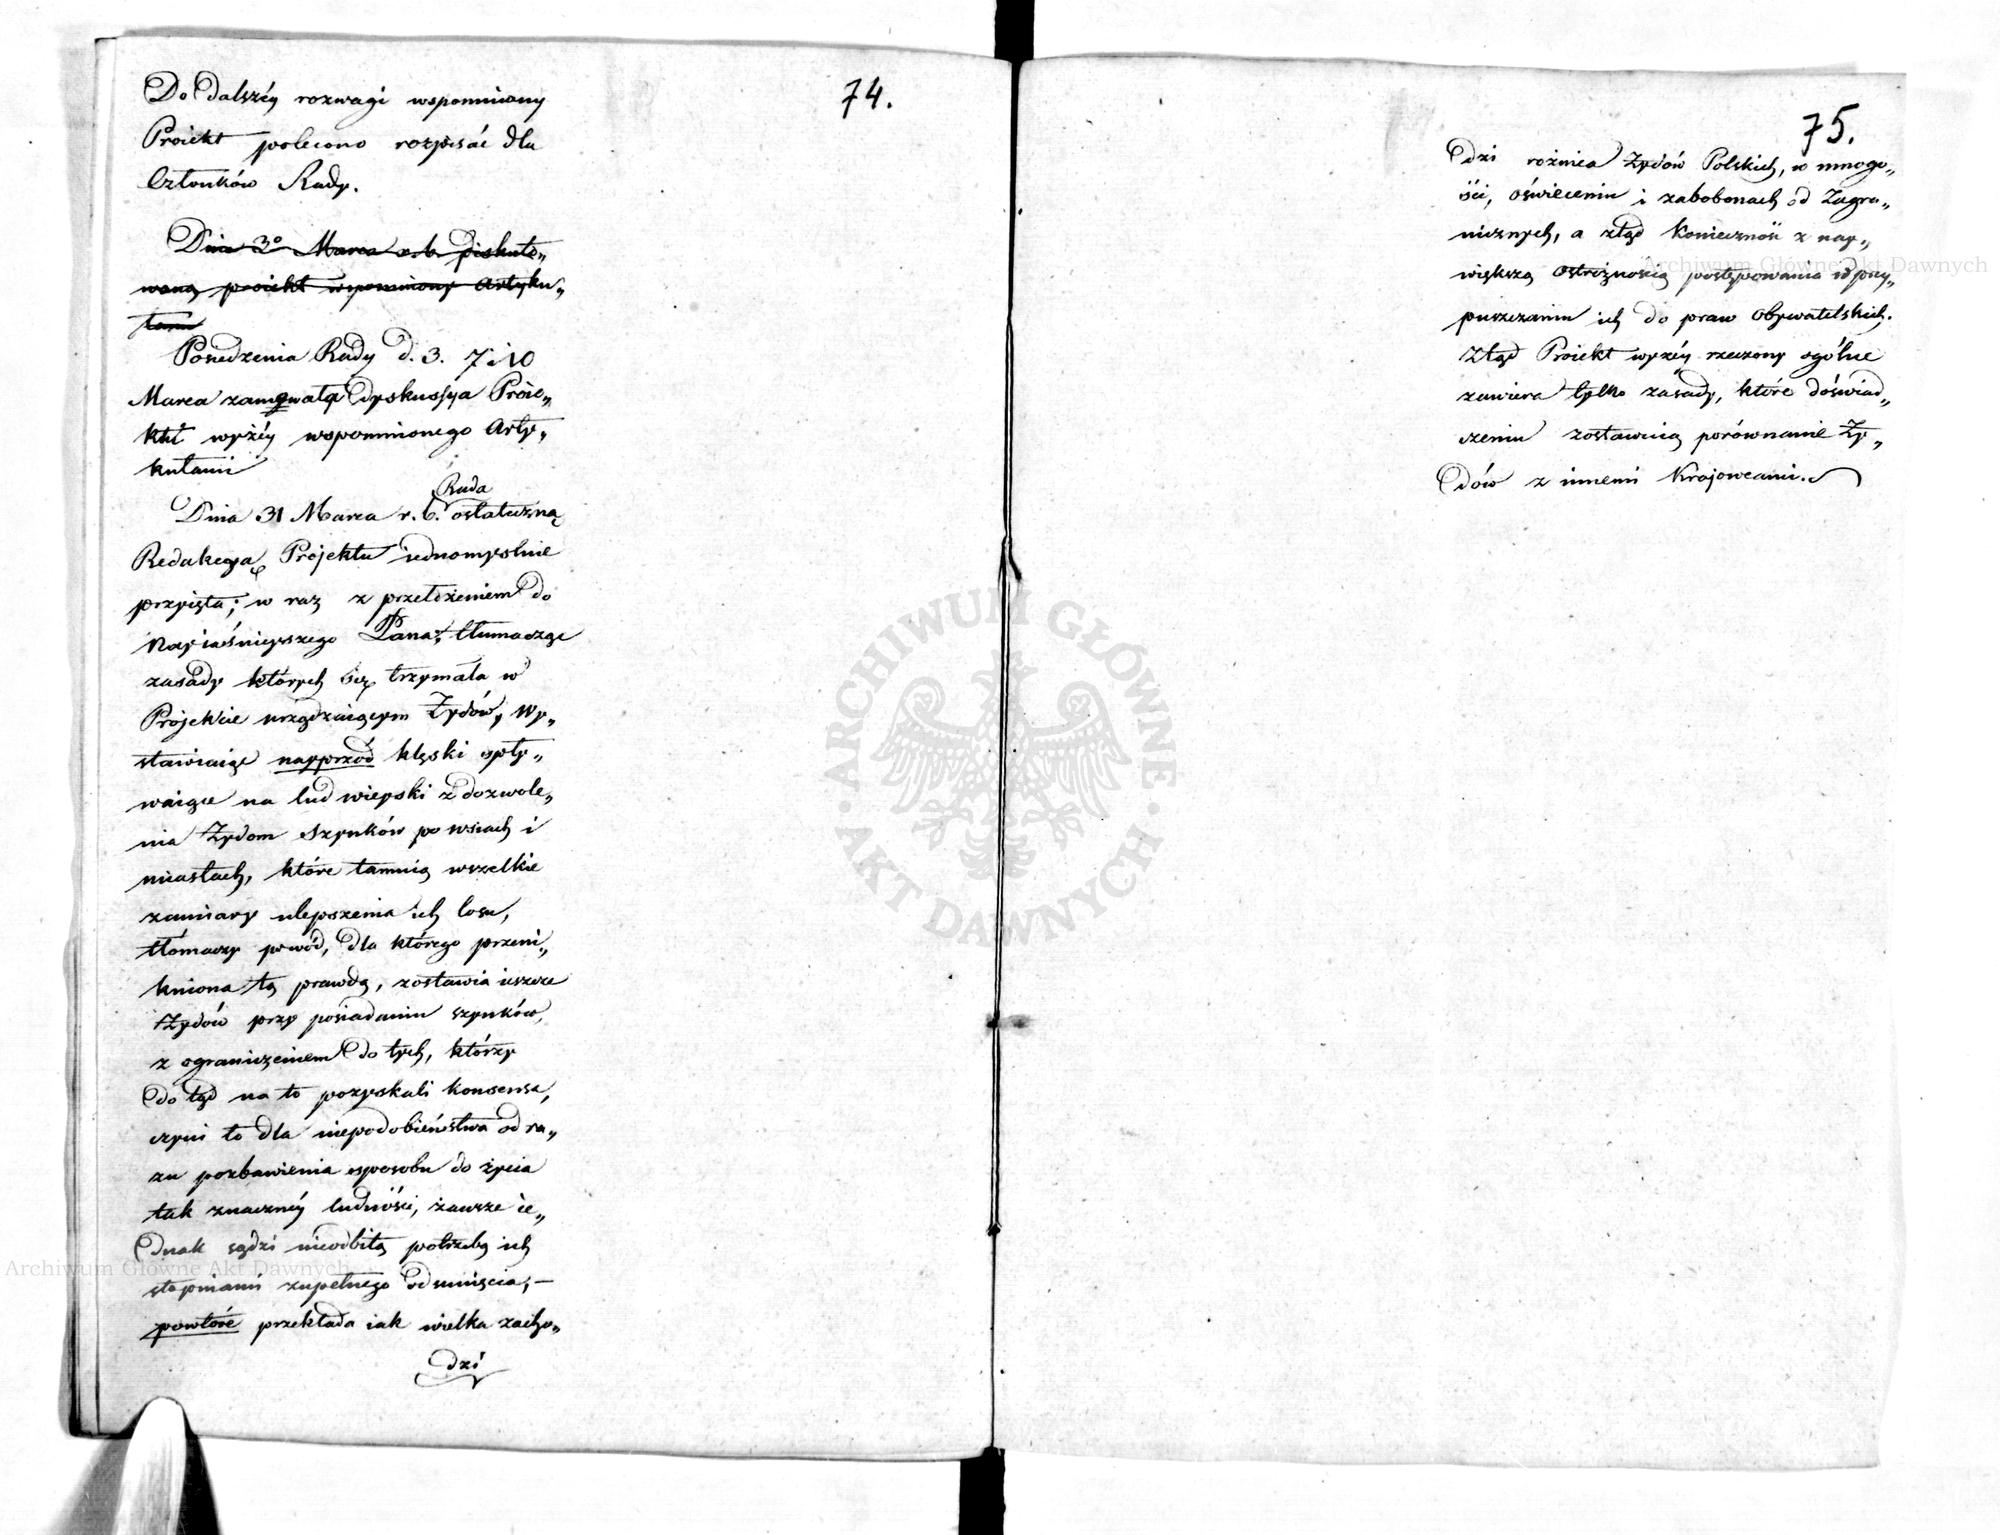 74.
Do dalszéy rozwagi wspomniony
Proiekt polecono rozpisać dla
Członków Rady.
Dnia 3º Marca r. b. diskuto„
waną proiekt wspomniony Artyku„
łami
Posiedzenia Rady d. 3. 7 i 10
Marca zaymowała dyskussya Proie„
ktu wyżéy wspomnionego Arty„
kułami
Rada
Dnia 31 Marca r. b. ostateczną
Redakcyą Projektu iednomyslnie
przyięta; w raz z przełożeniem do
Nayiaśnieyszego Pana; tłumacząc
zasady których się trzymała w
Projekcie urządzaiącym Żydów, Wy„
stawiaiąc nayprzód klęski spły„
waiące na lud wieyski z dozwole„
nia Żydom Szynków po wsiach i
miastach, które tamuią wszelkie
zamiary ulepszenia ich losu,
tłómaczy powód, dla którego przeni„
kniona tą prawdą, zostawia ieszcze
Żydów przy posiadaniu szynków,
z ograniczeniem do tych, którzy
do tąd na to pozyskali konsensa,
czyni to dla niepodobieństwa od ra„
zu pozbawienia sposobu do życia
tak znacznéy ludności, zawsze ie„
dnak sądzi nieodbitą potrzebę ich
stopniami zupełnego odsunięcia; —
powtóre przekłada iak wielka zacho„
dzi
75.
dzi rożnica Żydów Polskich, w mnogo„
ści, oświeceniu i zabobonach od Zagra„
nicznych, a ztąd konieczność z nay„
większą ostrożnością postępowania w przy„
puszczaniu ich do praw Obywatelskich.
Ztąd Proiekt wyżéy rzeczony ogólne
zawiera tylko zasady, które doświad„
czeniu zostawuią porównanie Ży„
dów z innemi Krajowcami.
ARCHIWUM GŁÓWNE
AKT DAWNYCH
Archiwum Główne Akt Dawnych
Archiwum Główne Akt Dawnych